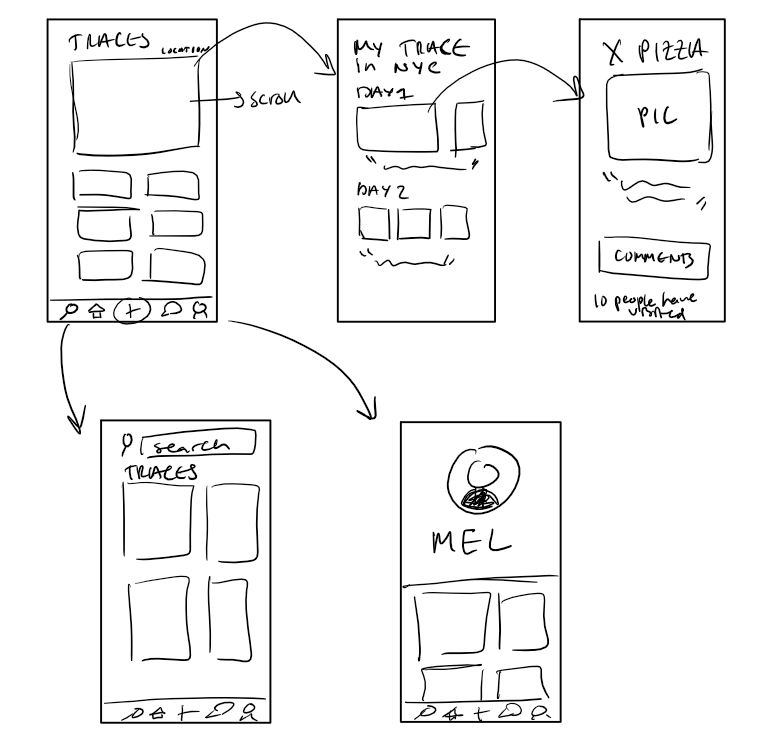 TRACES
LOCATION
SCROLL
MY TRACE
in NYC
DAY 1
DAY 2
X PIZZA
PIC
COMMENTS
10 people have
visited
search
TRACES
MEL